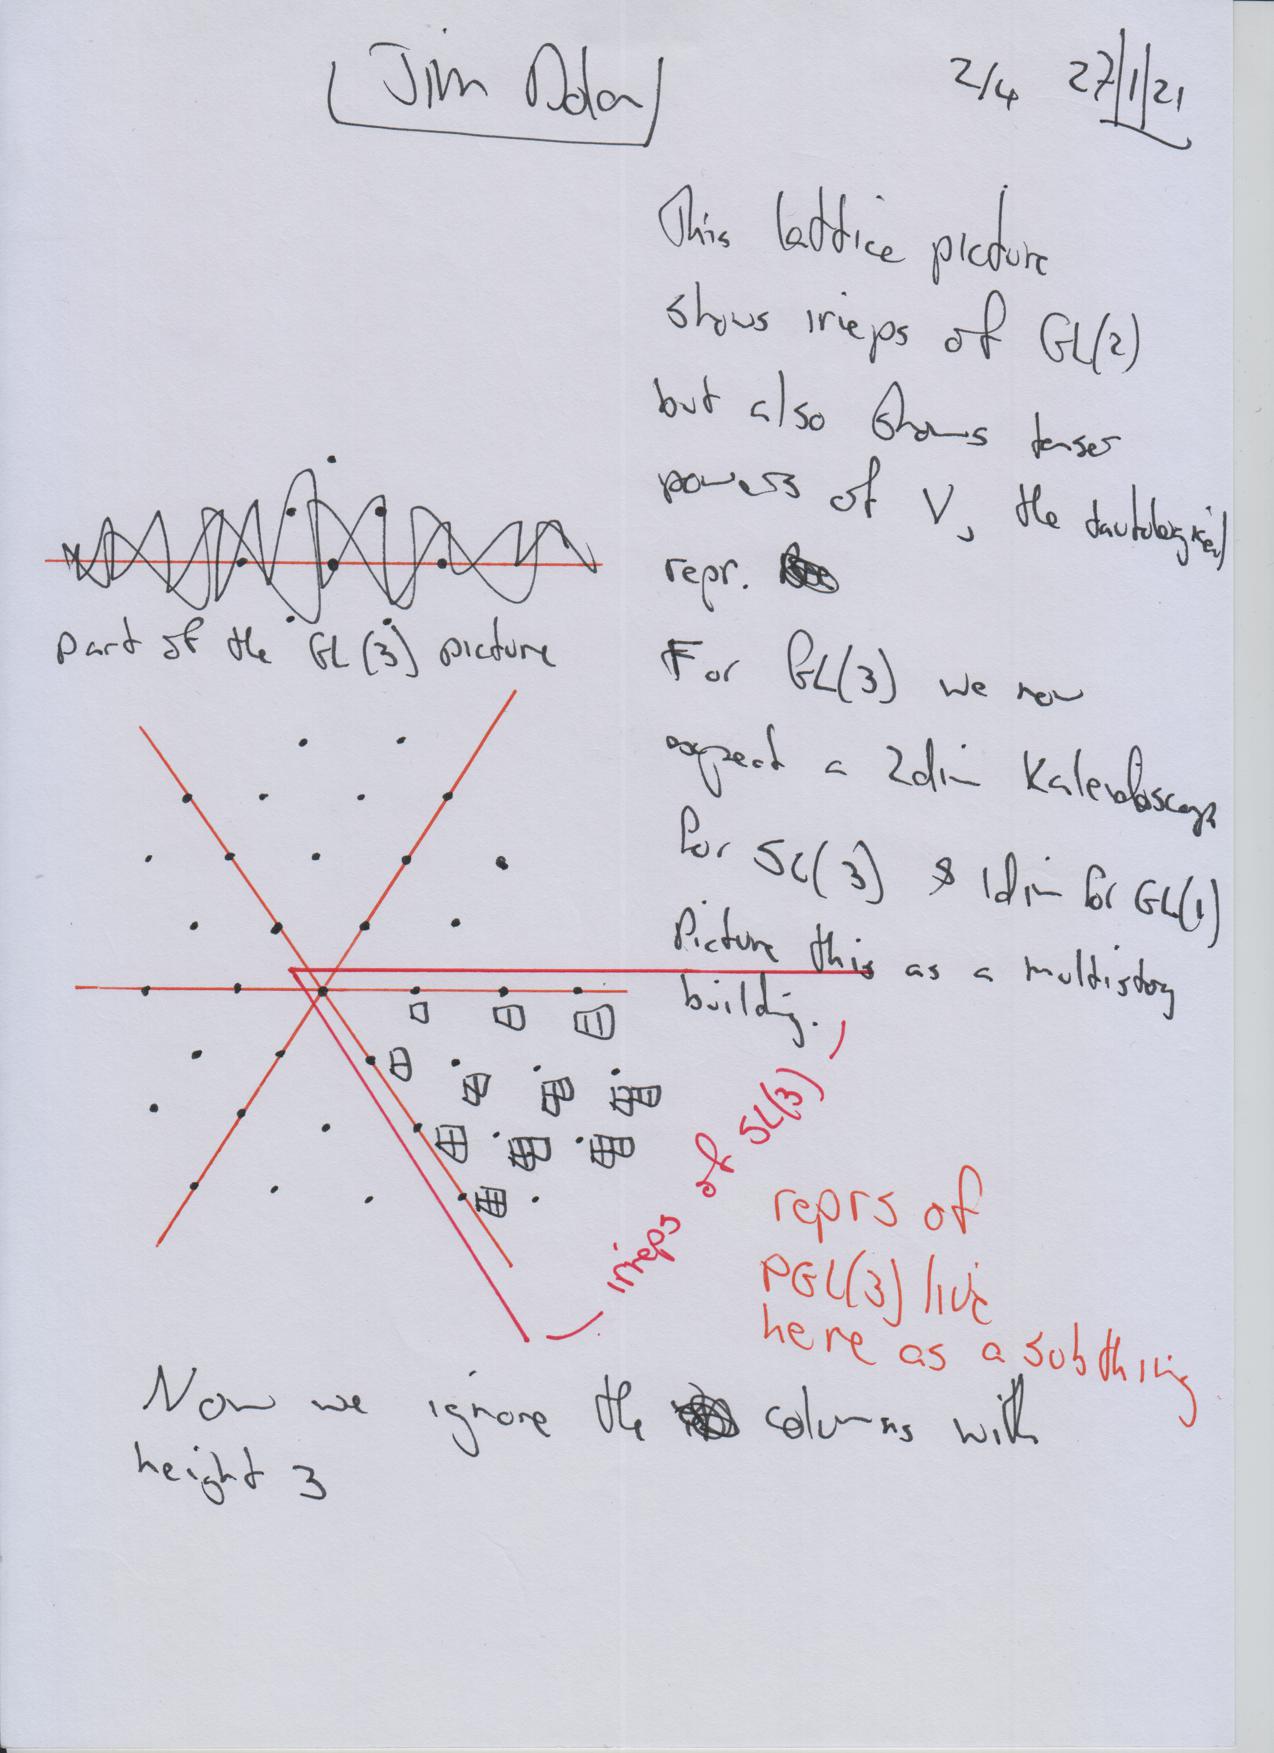 Jim Dolan
2/4 27/1/21
This lattice picture
shows irreps of GL(2)
but also shows tensor
powers of V, the tautological
repr.
part of the GL(3) picture
For GL(3) we now
expect a 2dim Kaleidoscope
for SL(3) & 1dim for GL(1)
Picture this as a multistory
building.
irreps of SL(3)
reprs of
PGL(3) live
here as a subthing
Now we ignore the columns with
height 3